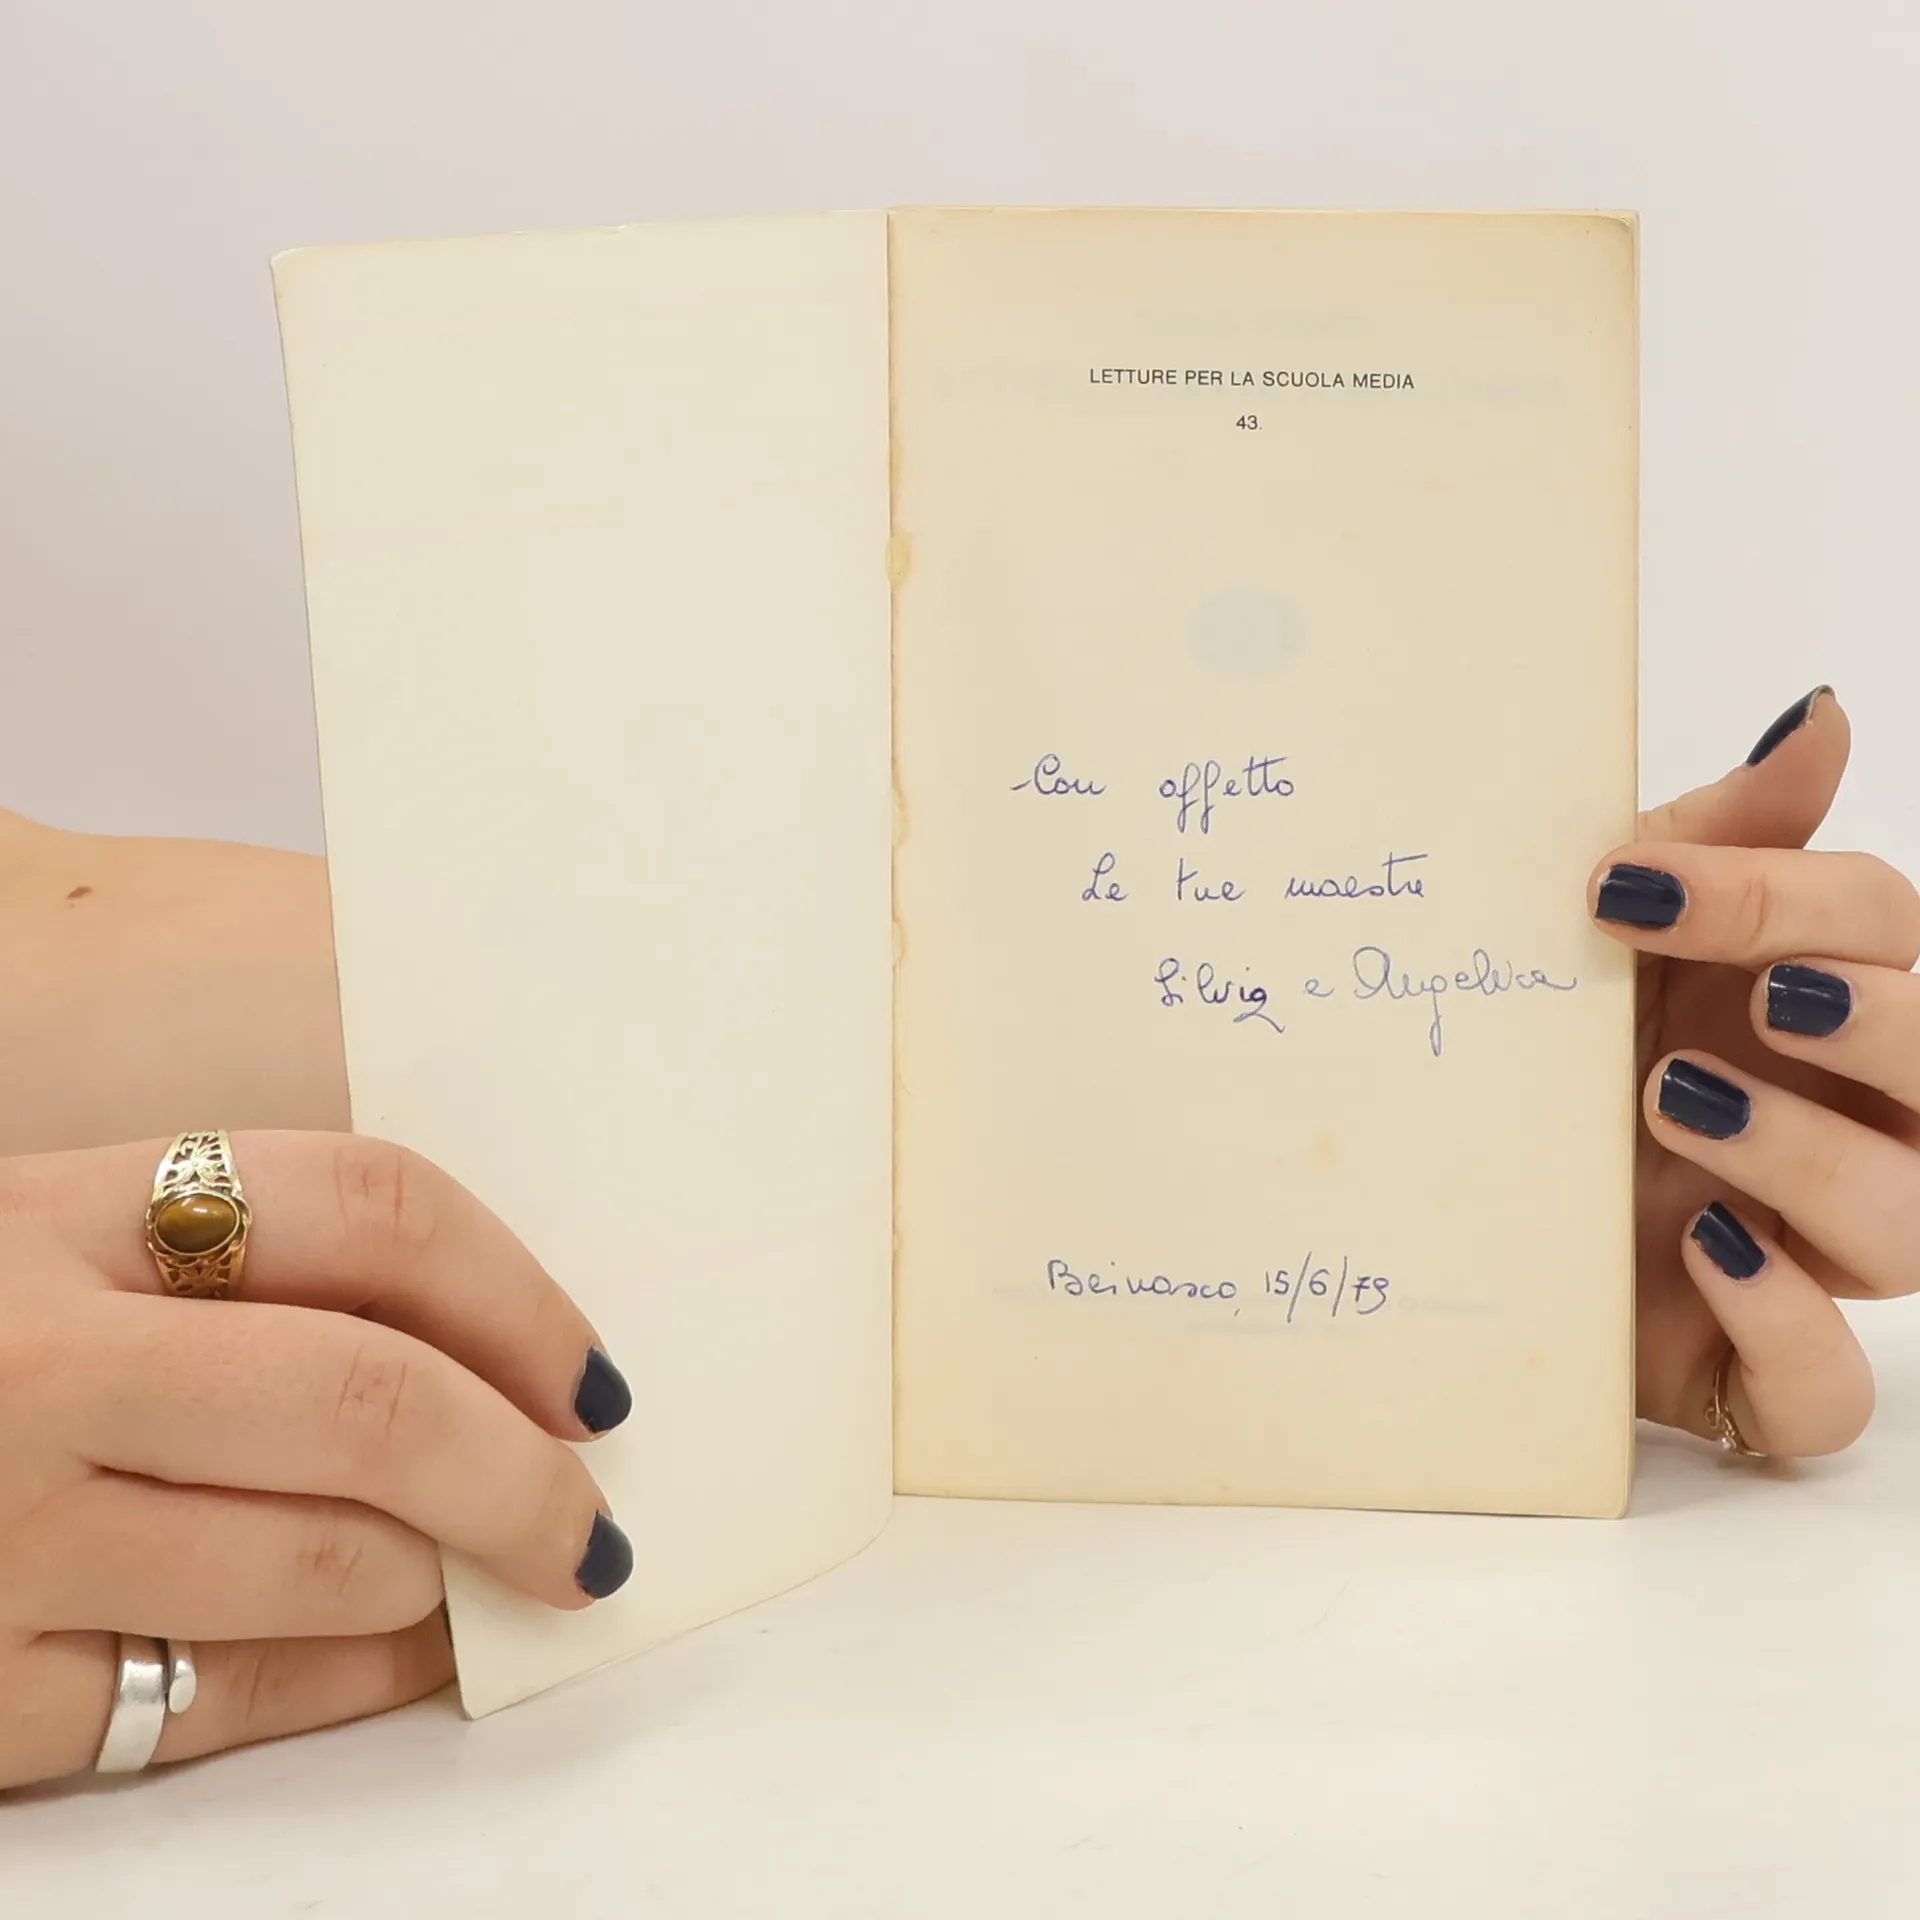 LETTURE PER LA SCUOLA MEDIA
43.
Con affetto
Le tue maestre
Silvia e Angelica
Beinasco, 15/6/79